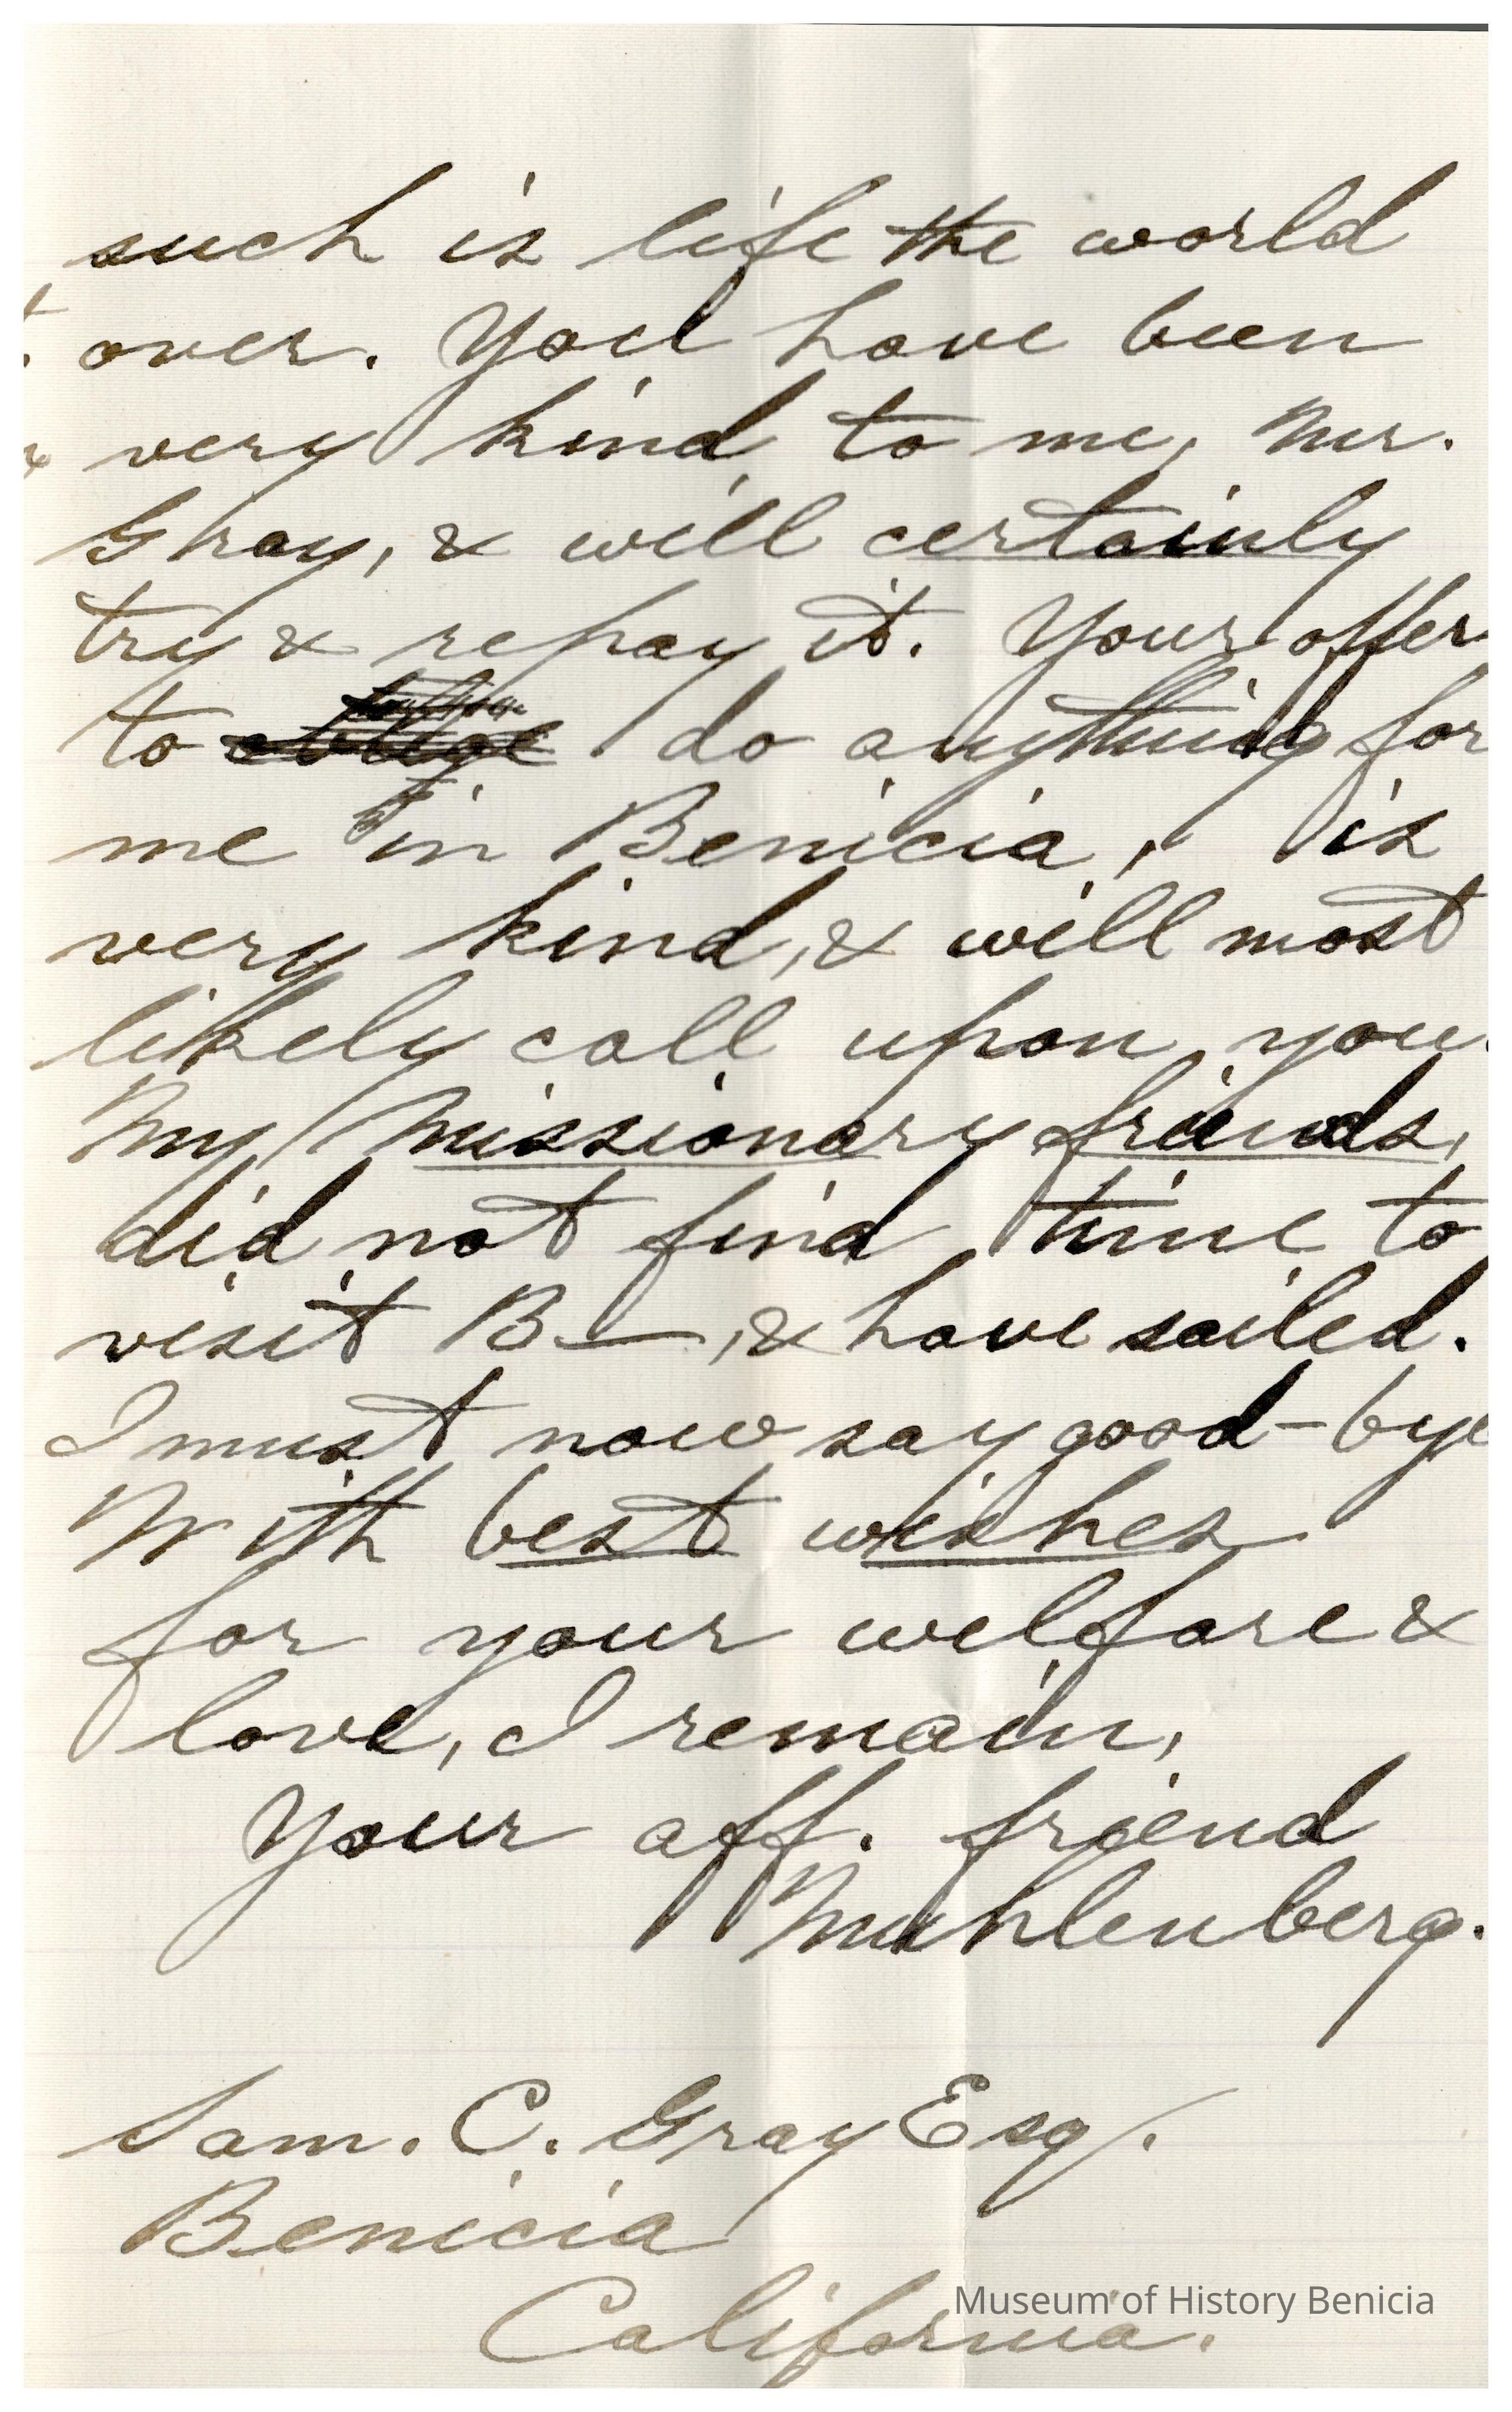 such is life the world
over. You have been
very kind to me, Mr.
Gray, & will certainly
try & repay it. Your offer
to do anything for
me in Benicia, is
very kind, & will most
likely call upon you.
My missionary friends,
did not find time to
visit B—, & have sailed.
I must now say good-bye
With best wishes
for your welfare &
love, I remain,
Your aff. friend
Muhlenberg.
Sam. C. Gray Esq.
Benicia
California.
Museum of History Benicia